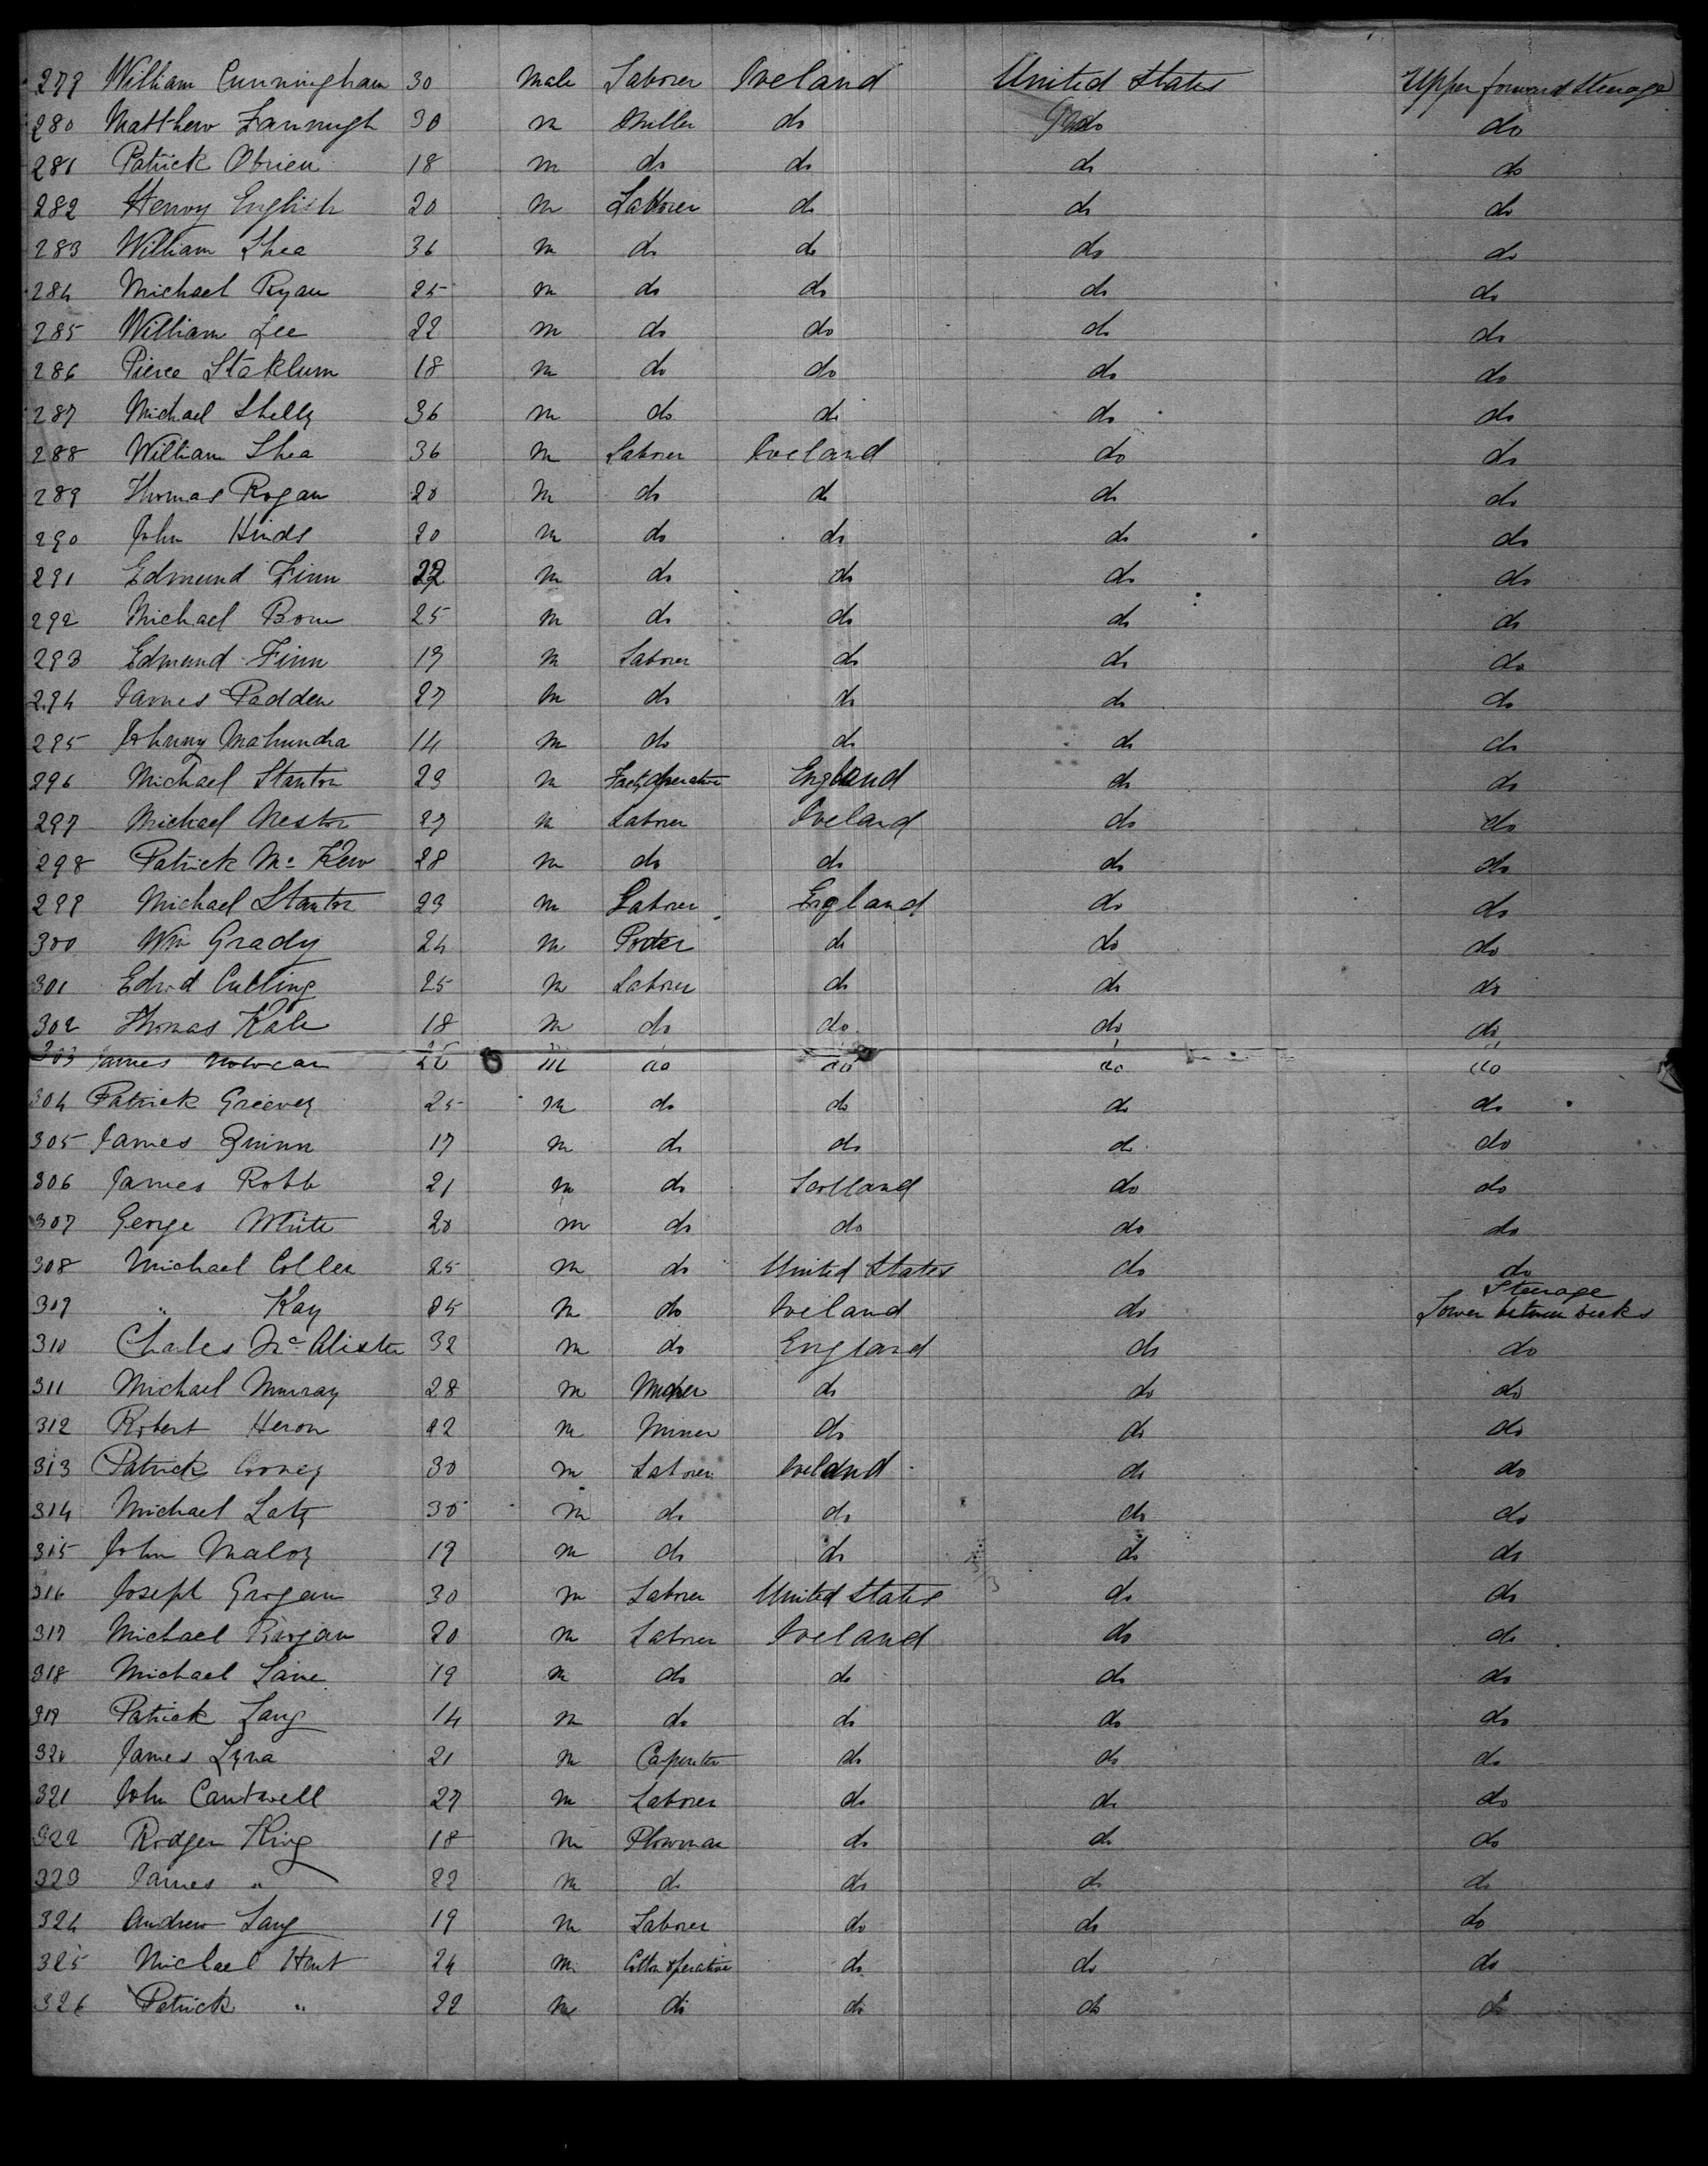 279 William Cunningham 30 male Laborer Ireland United States Upper forward Steerage
280 Matthew Fannugh 30 m Miller do do do
281 Patrick Obrien 18 m do do do do
282 Henry English 20 m Laborer do do do
283 William Shea 36 m do do do do
284 Michael Ryan 25 m do do do do
285 William Lee 22 m do do do do
286 Pierce Staklum 18 m do do do do
287 Michael Shelly 36 m do do do do
288 William Shea 36 m Laborer Ireland do do
289 Thomas Rogan 20 m do do do do
290 John Hinds 20 m do do do do
291 Edmund Finn 22 m do do do do
292 Michael Born 25 m do do do do
293 Edmund Finn 19 m Laborer do do do
294 James Padden 27 m do do do do
295 Johnny 14 m do do do do
296 Michael Stanton 23 m Facty Operative England do do
297 Michael Nestor 27 m Laborer Ireland do do
298 Patrick Mc Kew 28 m do do do do
299 Michael Stanton 23 m Laborer England do do
300 Wm Grady 24 m Porter do do do
301 Edwd Culling 25 m Laborer do do do
302 Thomas Kale 18 m do do do do
303 James m do do do do
304 Patrick Greevey 25 m do do do do
305 James Quinn 17 m do do do do
306 James Robb 21 m do Scotland do do
307 George White 20 m do do do do
308 Michael Coller 25 m do United States do do
309 " Kay 25 m do Ireland do Steerage Lower between decks
310 Chales Mc Alister 32 m do England do do
311 Michael Murray 28 m do do do
312 Robert Heron 22 m Miner do do do
313 Patrick Cooney 30 m Laborer Ireland do do
314 Michael Laty 30 m do do do do
315 John Maloy 19 m do do do do
316 Joseph Grogan 30 m Laborer United States do do
317 Michael 20 m Laborer Ireland do do
318 Michael Lane 19 m do do do do
319 Patrick Lang 14 m do do do do
320 James Lyna 21 m Carpenter do do do
321 John Cantwell 27 m Laborer do do do
322 Rodger King 18 m Plowman do do do
323 James " 22 m do do do do
324 Andrew Lang 19 m Laborer do do do
325 Michael Hunt 24 m Cotton operative do do do
326 Patrick " 22 m do do do do